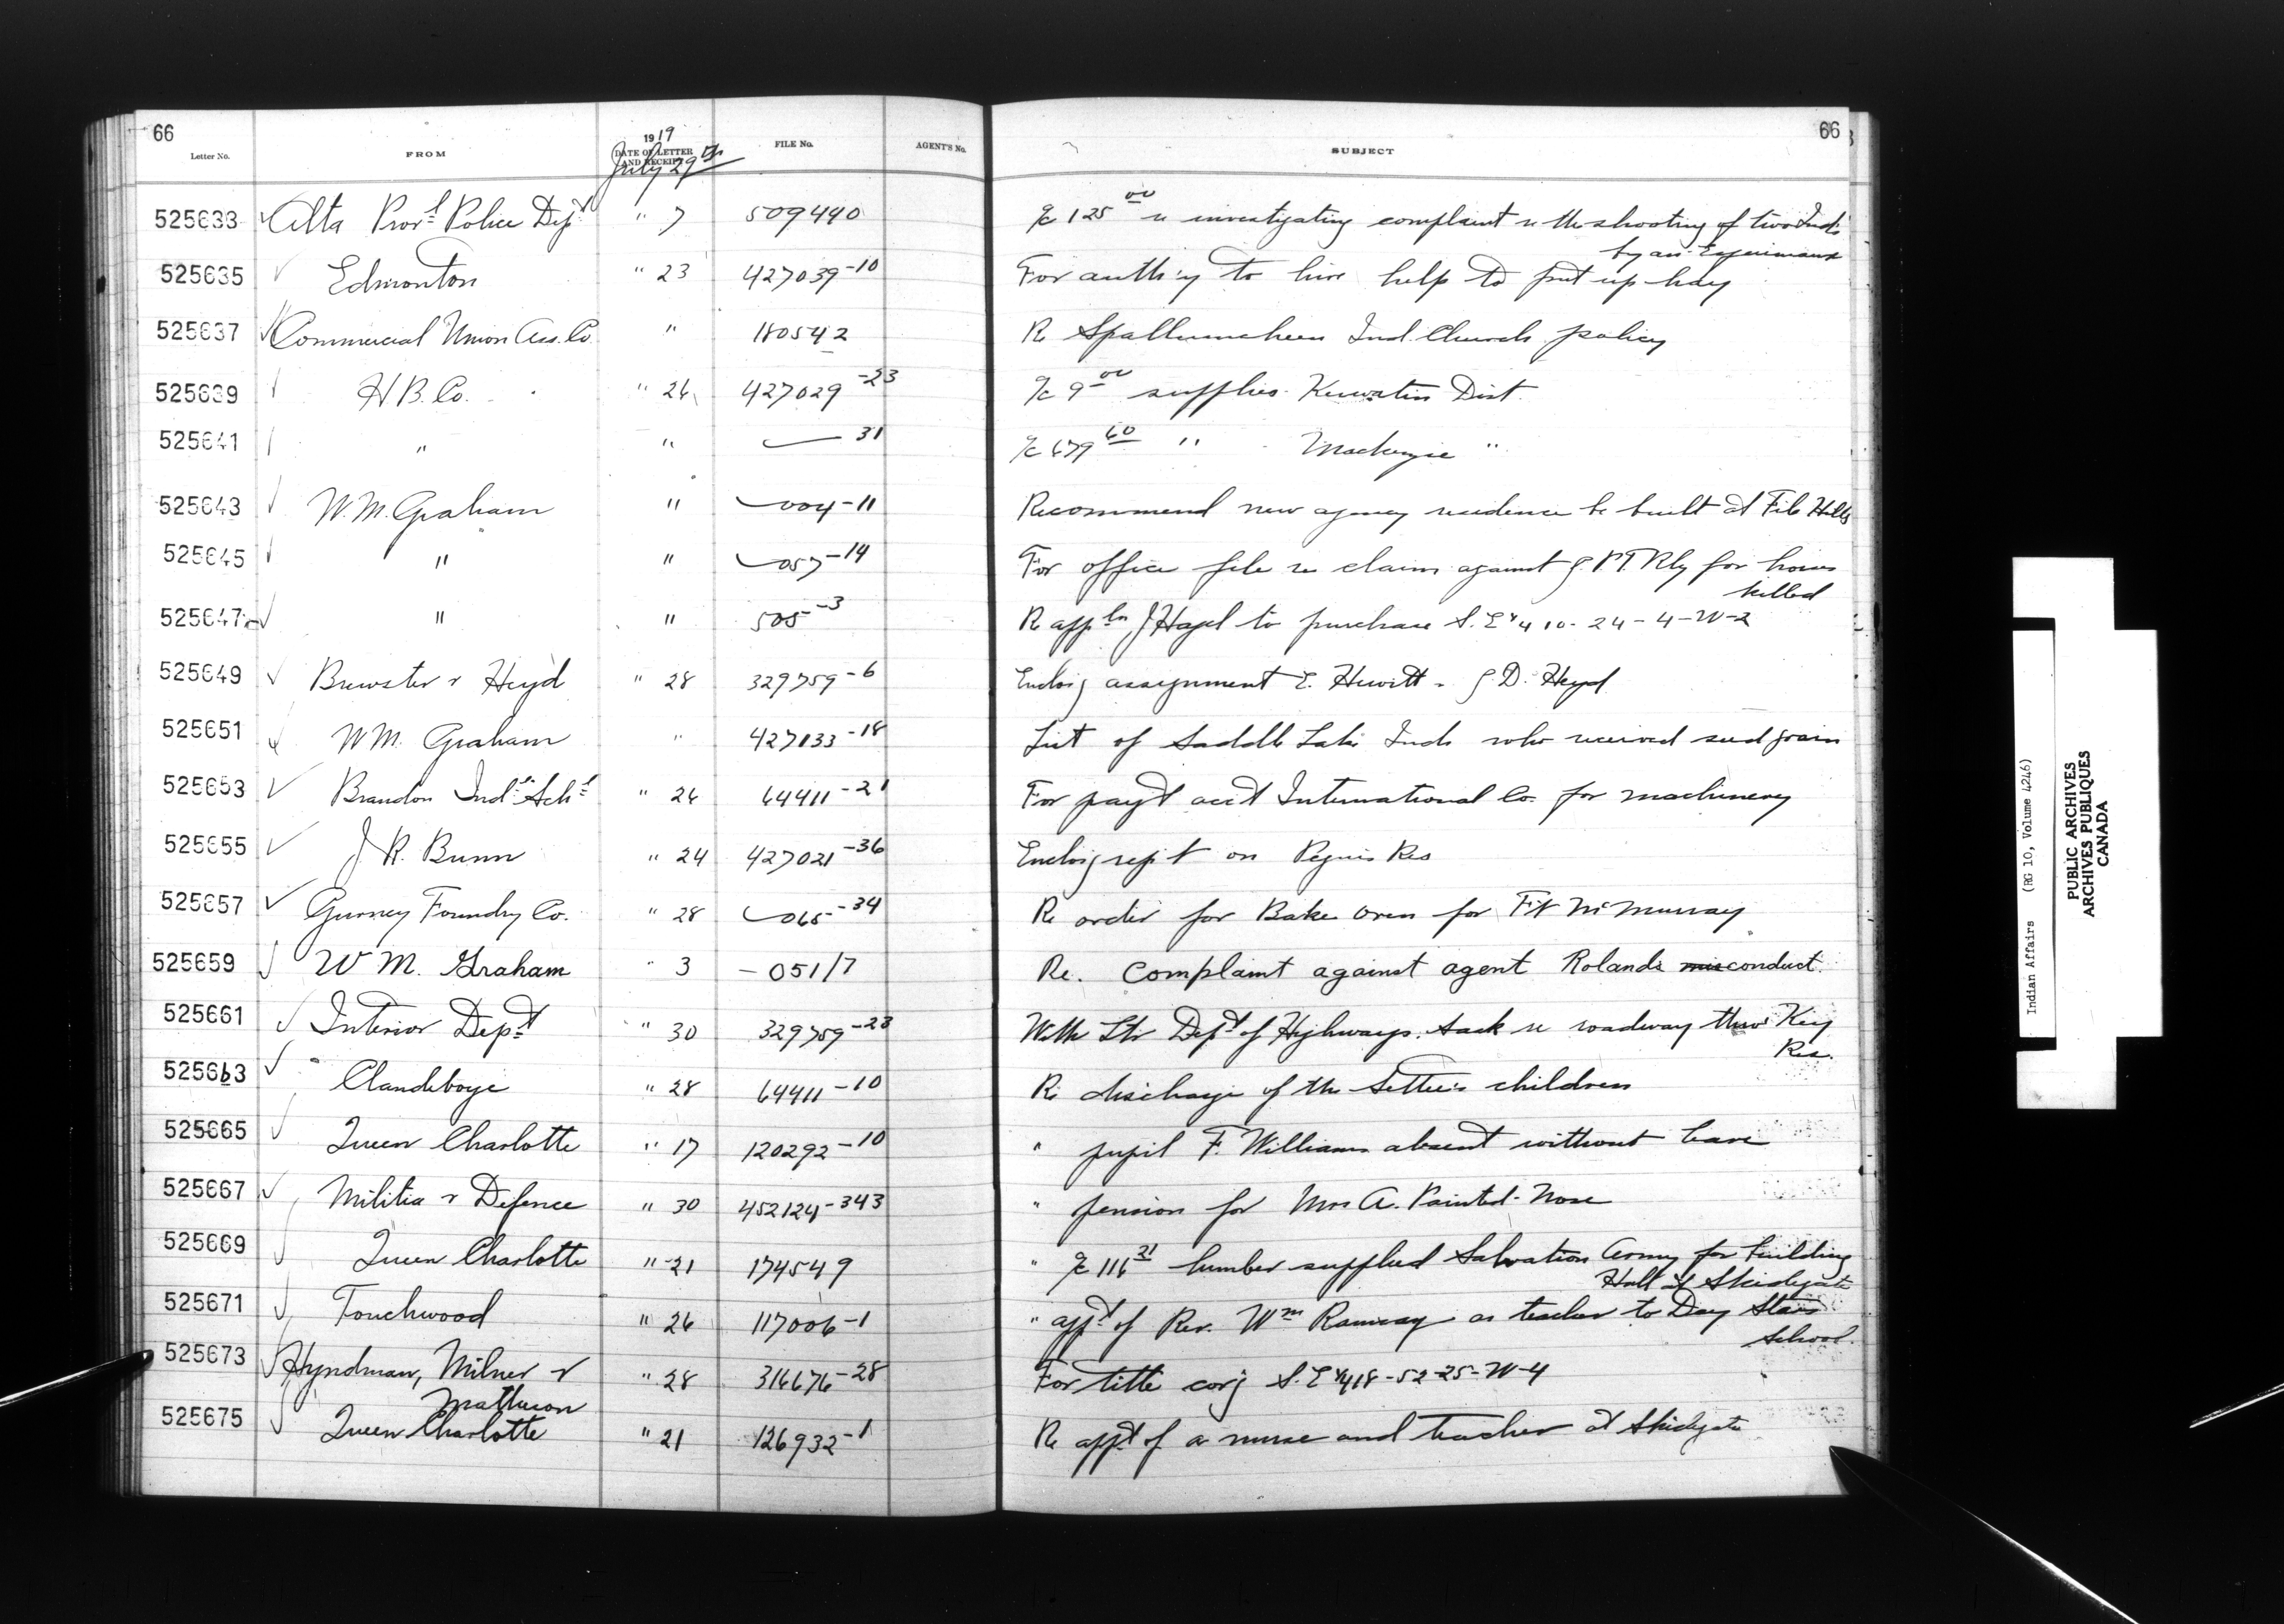 66
66
Letter No.
FROM
1919
DATE OF LETTER AND RECEIPT
July 29th
FILE No.
AGENT'S No.
SUBJECT
525633 Alta Provl Police Dept " 7 509440 a/c 125 00 re investigating complaint re the shooting of two Inds
by an Esquimaux
525635 Edmonton " 23 427039-10 For auth'y to hire help to put up hay
525637 Commercial Union Ass. Co. " 180542 Re Spallumcheen Ind. Church policy
525639 H B. Co. " 26 427029-23 a/c 9 00 supplies Keewatin Dist.
525641 " " 31 a/c 679 60 " Mackenzie "
525643 W. M. Graham " 004-11 Recommend new agency residence be built at File Hills
525645 " " 057-14 For office file re claim against G.P.T. Rly for horses
killed
525647 " " 505-3 Re appln J Hazel to purchase S.E 1/4 10-24-4-W-2
525649 Brewster & Heyd " 28 329759-6 Enclos'g assignment E. Hewitt - G. D. Heyd
525651 W M. Graham " 427133-18 List of Saddle Lake Inds who received seed grain
525653 Brandon Indl Schl " 26 64411-21 For pay't acc't International Co. for machinery
525655 J. R. Bunn " 24 427021-36 Enclos'g rep't on Peguis Res
525657 Gurney Foundry Co. " 28 065-34 Re order for Bake Oven for Ft McMurray
525659 W M. Graham " 3 - 051/7 Re. Complaint against agent Roland's misconduct.
525661 Interior Dept " 30 329759-23 With Ltr Dept of Highways. Sask re roadway thro' Key
Res.
525663 Clandeboye " 28 64411-10 Re discharge of the Settee's children
525665 Queen Charlotte " 17 120292-10 " pupil F. Williams absent without leave
525667 Militia & Defence " 30 452124-343 " pension for Mrs A. Painted-Nose
525669 Queen Charlotte " 21 174549 " a/c 116 21 lumber supplied Salvation Army for building
Hall at Skidegate
525671 Touchwood " 26 117006-1 " appt of Rev. Wm Ramsay as teacher to Day Stars
School.
525673 Hyndman, Milner & " 28 316676-28 For title cov'g S.E 1/4 18-52-25-W-4
Matheson
525675 Queen Charlotte " 21 126932-1 Re appt of a nurse and teacher at Skidegate
Indian Affairs (RG 10, Volume 4246)
PUBLIC ARCHIVES
ARCHIVES PUBLIQUES
CANADA